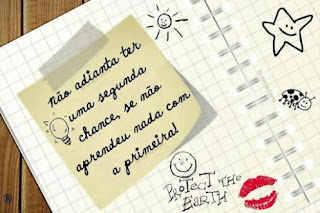 não adianta ter
uma segunda
chance, se não
aprendeu nada com
a primeira!
PROTECT THE
EARTH
®